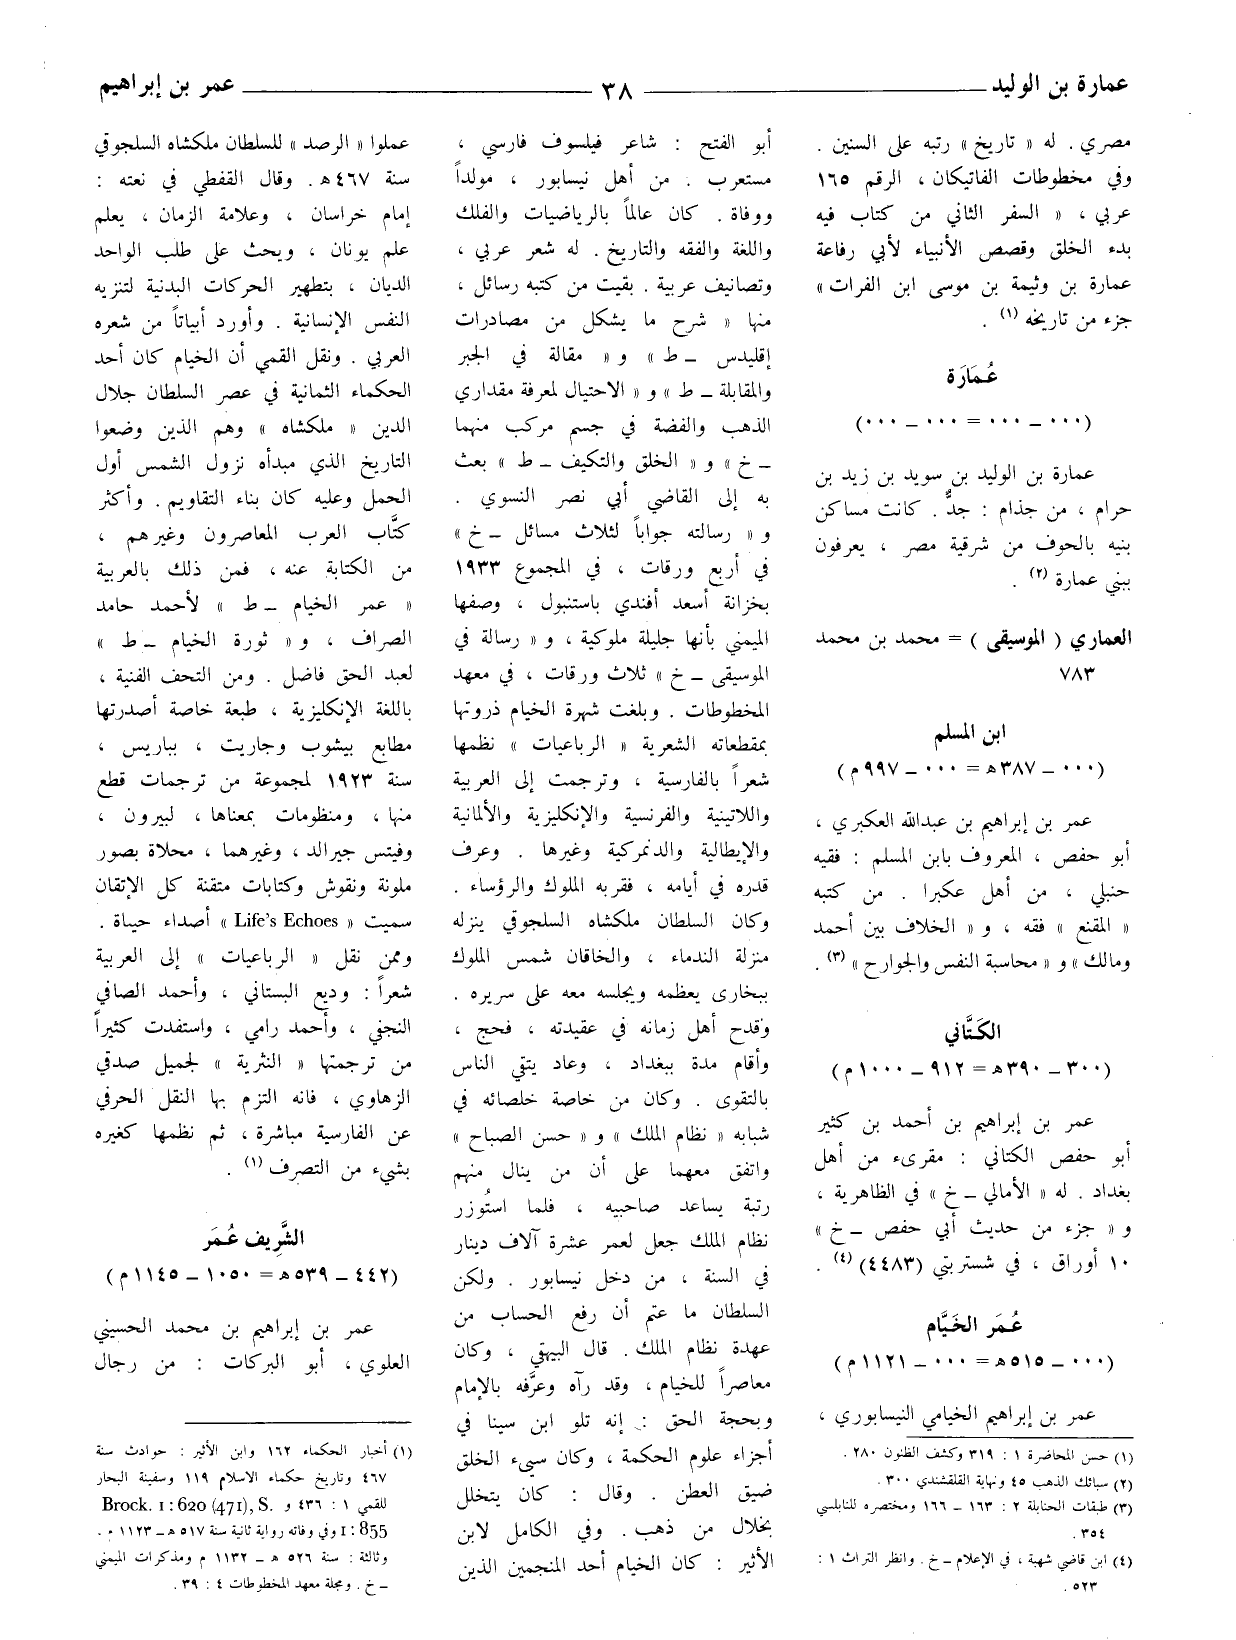 عمارة بن الوليد ــــــ ٣٨ ــــــ عمر بن إبراهيم
مصري . له « تاريخ » رتبه على السنين .
وفي مخطوطات الفاتيكان ، الرقم ١٦٥
عربي ، « السفر الثاني من كتاب فيه
بدء الخلق وقصص الأنبياء لأبي رفاعة
عمارة بن وثيمة بن موسى ابن الفرات »
جزء من تاريخه (١) .
عُمَارَة
(٠٠٠ ــ ٠٠٠ = ٠٠٠ ــ ٠٠٠)
عمارة بن الوليد بن سويد بن زيد بن
حرام ، من جذام : جدٌّ . كانت مساكن
بنيه بالحوف من شرقية مصر ، يعرفون
ببني عمارة (٢) .
العماري ( الموسيقى ) = محمد بن محمد
٧٨٣
ابن المسلم
(٠٠٠ ــ ٣٨٧ هـ = ٠٠٠ ــ ٩٩٧ م)
عمر بن إبراهيم بن عبدالله العكبري ،
أبو حفص ، المعروف بابن المسلم : فقيه
حنبلي ، من أهل عكبرا . من كتبه
« المقنع » فقه ، و « الخلاف بين أحمد
ومالك » و « محاسبة النفس والجوارح » (٣) .
الكَتَّاني
(٣٠٠ ــ ٣٩٠ هـ = ٩١٢ ــ ١٠٠٠ م)
عمر بن إبراهيم بن أحمد بن كثير
أبو حفص الكتاني : مقرىء من أهل
بغداد . له « الأمالي ــ خ » في الظاهرية ،
و « جزء من حديث أبي حفص ــ خ »
١٠ أوراق ، في شستربتي (٤٤٨٣) (٤) .
عُمَر الخَيَّام
(٠٠٠ ــ ٥١٥ هـ = ٠٠٠ ــ ١١٢١ م)
عمر بن إبراهيم الخيامي النيسابوري ،
(١) حسن المحاضرة ١ : ٣١٩ وكشف الظنون ٢٨٠ .
(٢) سبائك الذهب ٤٥ ونهاية القلقشندي ٣٠٠ .
(٣) طبقات الحنابلة ٢ : ١٦٣ ــ ١٦٦ ومختصره للنابلسي
٣٥٤ .
(٤) ابن قاضي شهبة ، في الإعلام ــ خ . وانظر التراث ١ :
٥٢٣ .
أبو الفتح : شاعر فيلسوف فارسي ،
مستعرب . من أهل نيسابور ، مولداً
ووفاة . كان عالماً بالرياضيات والفلك
واللغة والفقه والتاريخ . له شعر عربي ،
وتصانيف عربية . بقيت من كتبه رسائل ،
منها « شرح ما يشكل من مصادرات
إقليدس ــ ط » و « مقالة في الجبر
والمقابلة ــ ط » و « الاحتيال لمعرفة مقداري
الذهب والفضة في جسم مركب منهما
ــ خ » و « الخلق والتكيف ــ ط » بعث
به إلى القاضي أبي نصر النسوي .
و « رسالته جواباً لثلاث مسائل ــ خ »
في أربع ورقات ، في المجموع ١٩٣٣
بخزانة أسعد أفندي باستنبول ، وصفها
الميمني بأنها جليلة ملوكية ، و « رسالة في
الموسيقى ــ خ » ثلاث ورقات ، في معهد
المخطوطات . وبلغت شهرة الخيام ذروتها
بمقطعاته الشعرية « الرباعيات » نظمها
شعراً بالفارسية ، وترجمت إلى العربية
واللاتينية والفرنسية والإنكليزية والألمانية
والإيطالية والدنمركية وغيرها . وعرف
قدره في أيامه ، فقربه الملوك والرؤساء .
وكان السلطان ملكشاه السلجوقي ينزله
منزلة الندماء ، والخاقان شمس الملوك
ببخارى يعظمه ويجلسه معه على سريره .
وقدح أهل زمانه في عقيدته ، فحج ،
وأقام مدة ببغداد ، وعاد يتقي الناس
بالتقوى . وكان من خاصة خلصائه في
شبابه « نظام الملك » و « حسن الصباح »
واتفق معهما على أن من ينال منهم
رتبة يساعد صاحبيه ، فلما استُوزر
نظام الملك جعل لعمر عشرة آلاف دينار
في السنة ، من دخل نيسابور . ولكن
السلطان ما عتم أن رفع الحساب من
عهدة نظام الملك . قال البيهقي ، وكان
معاصراً للخيام ، وقد رآه وعرَّفه بالإمام
وبحجة الحق : إنه تلو ابن سينا في
أجزاء علوم الحكمة ، وكان سيىء الخلق
ضيق العطن . وقال : كان يتخلل
بخلال من ذهب . وفي الكامل لابن
الأثير : كان الخيام أحد المنجمين الذين
عملوا « الرصد » للسلطان ملكشاه السلجوقي
سنة ٤٦٧ هـ . وقال القفطي في نعته :
إمام خراسان ، وعلامة الزمان ، يعلم
علم يونان ، ويحث على طلب الواحد
الديان ، بتطهير الحركات البدنية لتنزيه
النفس الإنسانية . وأورد أبياتاً من شعره
العربي . ونقل القمي أن الخيام كان أحد
الحكماء الثمانية في عصر السلطان جلال
الدين « ملكشاه » وهم الذين وضعوا
التاريخ الذي مبدأه نزول الشمس أول
الحمل وعليه كان بناء التقاويم . وأكثر
كتَّاب العرب المعاصرون وغيرهم ،
من الكتابة عنه ، فمن ذلك بالعربية
« عمر الخيام ــ ط » لأحمد حامد
الصراف ، و « ثورة الخيام ــ ط »
لعبد الحق فاضل . ومن التحف الفنية ،
باللغة الإنكليزية ، طبعة خاصة أصدرتها
مطابع بيشوب وجاريت ، بباريس ،
سنة ١٩٢٣ لمجموعة من ترجمات قطع
منها ، ومنظومات بمعناها ، لبيرون ،
وفيتس جيرالد ، وغيرهما ، محلاة بصور
ملونة ونقوش وكتابات متقنة كل الإتقان
سميت « Life's Echoes » أصداء حياة .
وممن نقل « الرباعيات » إلى العربية
شعراً : وديع البستاني ، وأحمد الصافي
النجفي ، وأحمد رامي ، واستفدت كثيراً
من ترجمتها « النثرية » لجميل صدقي
الزهاوي ، فانه التزم بها النقل الحرفي
عن الفارسية مباشرة ، ثم نظمها كغيره
بشيء من التصرف (١) .
الشَّرِيف عُمَر
(٤٤٢ ــ ٥٣٩ هـ = ١٠٥٠ ــ ١١٤٥ م)
عمر بن إبراهيم بن محمد الحسيني
العلوي ، أبو البركات : من رجال
(١) أخبار الحكماء ١٦٢ وابن الأثير : حوادث سنة
٤٦٧ وتاريخ حكماء الاسلام ١١٩ وسفينة البحار
للقمي ١ : ٤٣٦ و Brock. 1 : 620 (471), S.
1 : 855 وفي وفاته رواية ثانية سنة ٥١٧ هـ ــ ١١٢٣ م .
وثالثة : سنة ٥٢٦ هـ ــ ١١٣٢ م ومذكرات الميمني
ــ خ . ومجلة معهد المخطوطات ٤ : ٣٩ .